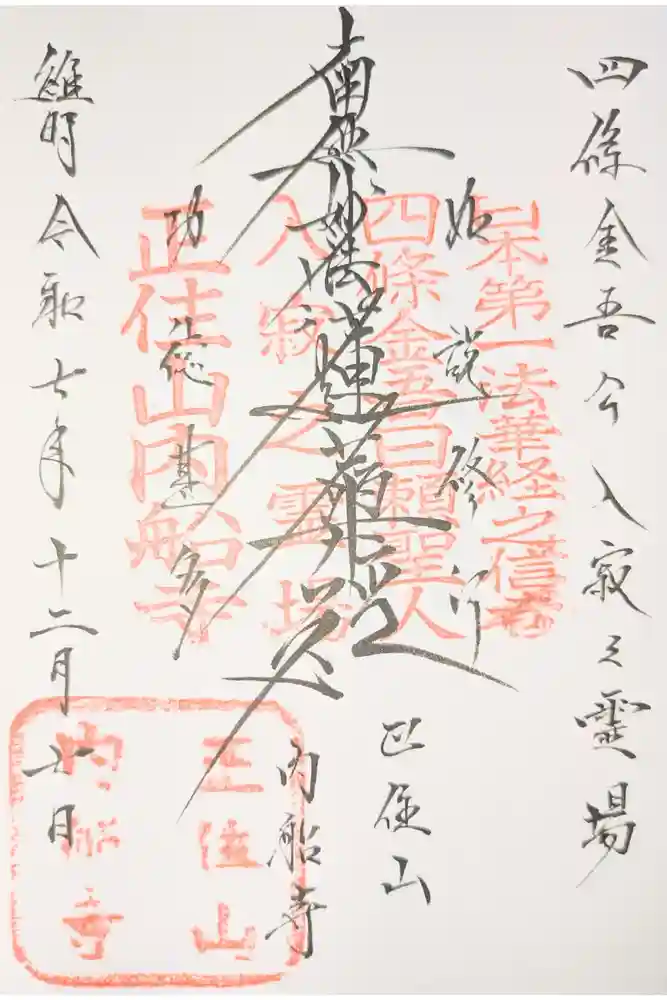 四條金吾公入寂之霊場
如説修行
功徳甚多
南無妙法蓮華経
日本第一法華経之信者
四條金吾日頼聖人
入寂之霊場
正住山内船寺
正住山
内船寺
維時令和七年十二月七日
正住山
内船寺